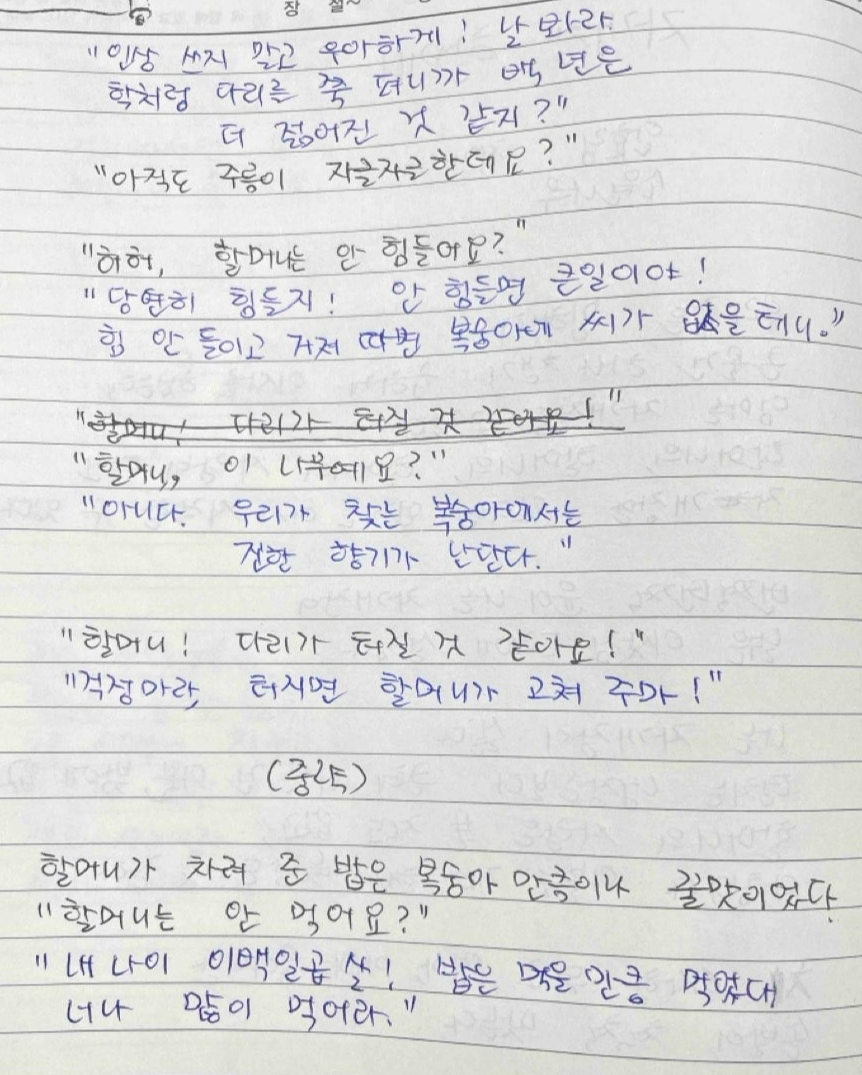 장 절
"인상 쓰지 말고 우아하게! 날 봐라.
학처럼 다리를 쭉 펴니까 백 년은
더 젊어진 것 같지?"
"아직도 주름이 자글자글한데요?"
"허허, 할머니는 안 힘들어요?"
"당연히 힘들지! 안 힘들면 큰일이야!
힘 안 들이고 거저 따면 복숭아에 씨가 없을 테니."
"할머니! 다리가 터질 것 같아요!"
"할머니, 이 나무예요?"
"아니다. 우리가 찾는 복숭아에서는
진한 향기가 난단다."
"할머니! 다리가 터질 것 같아요!"
"걱정마라, 터지면 할머니가 고쳐 주마!"
(중략)
할머니가 차려 준 밥은 복숭아 만큼이나 꿀맛이었다.
"할머니는 안 먹어요?"
"내 나이 이백일곱 살! 밥은 먹을 만큼 먹었다.
너나 많이 먹어라."